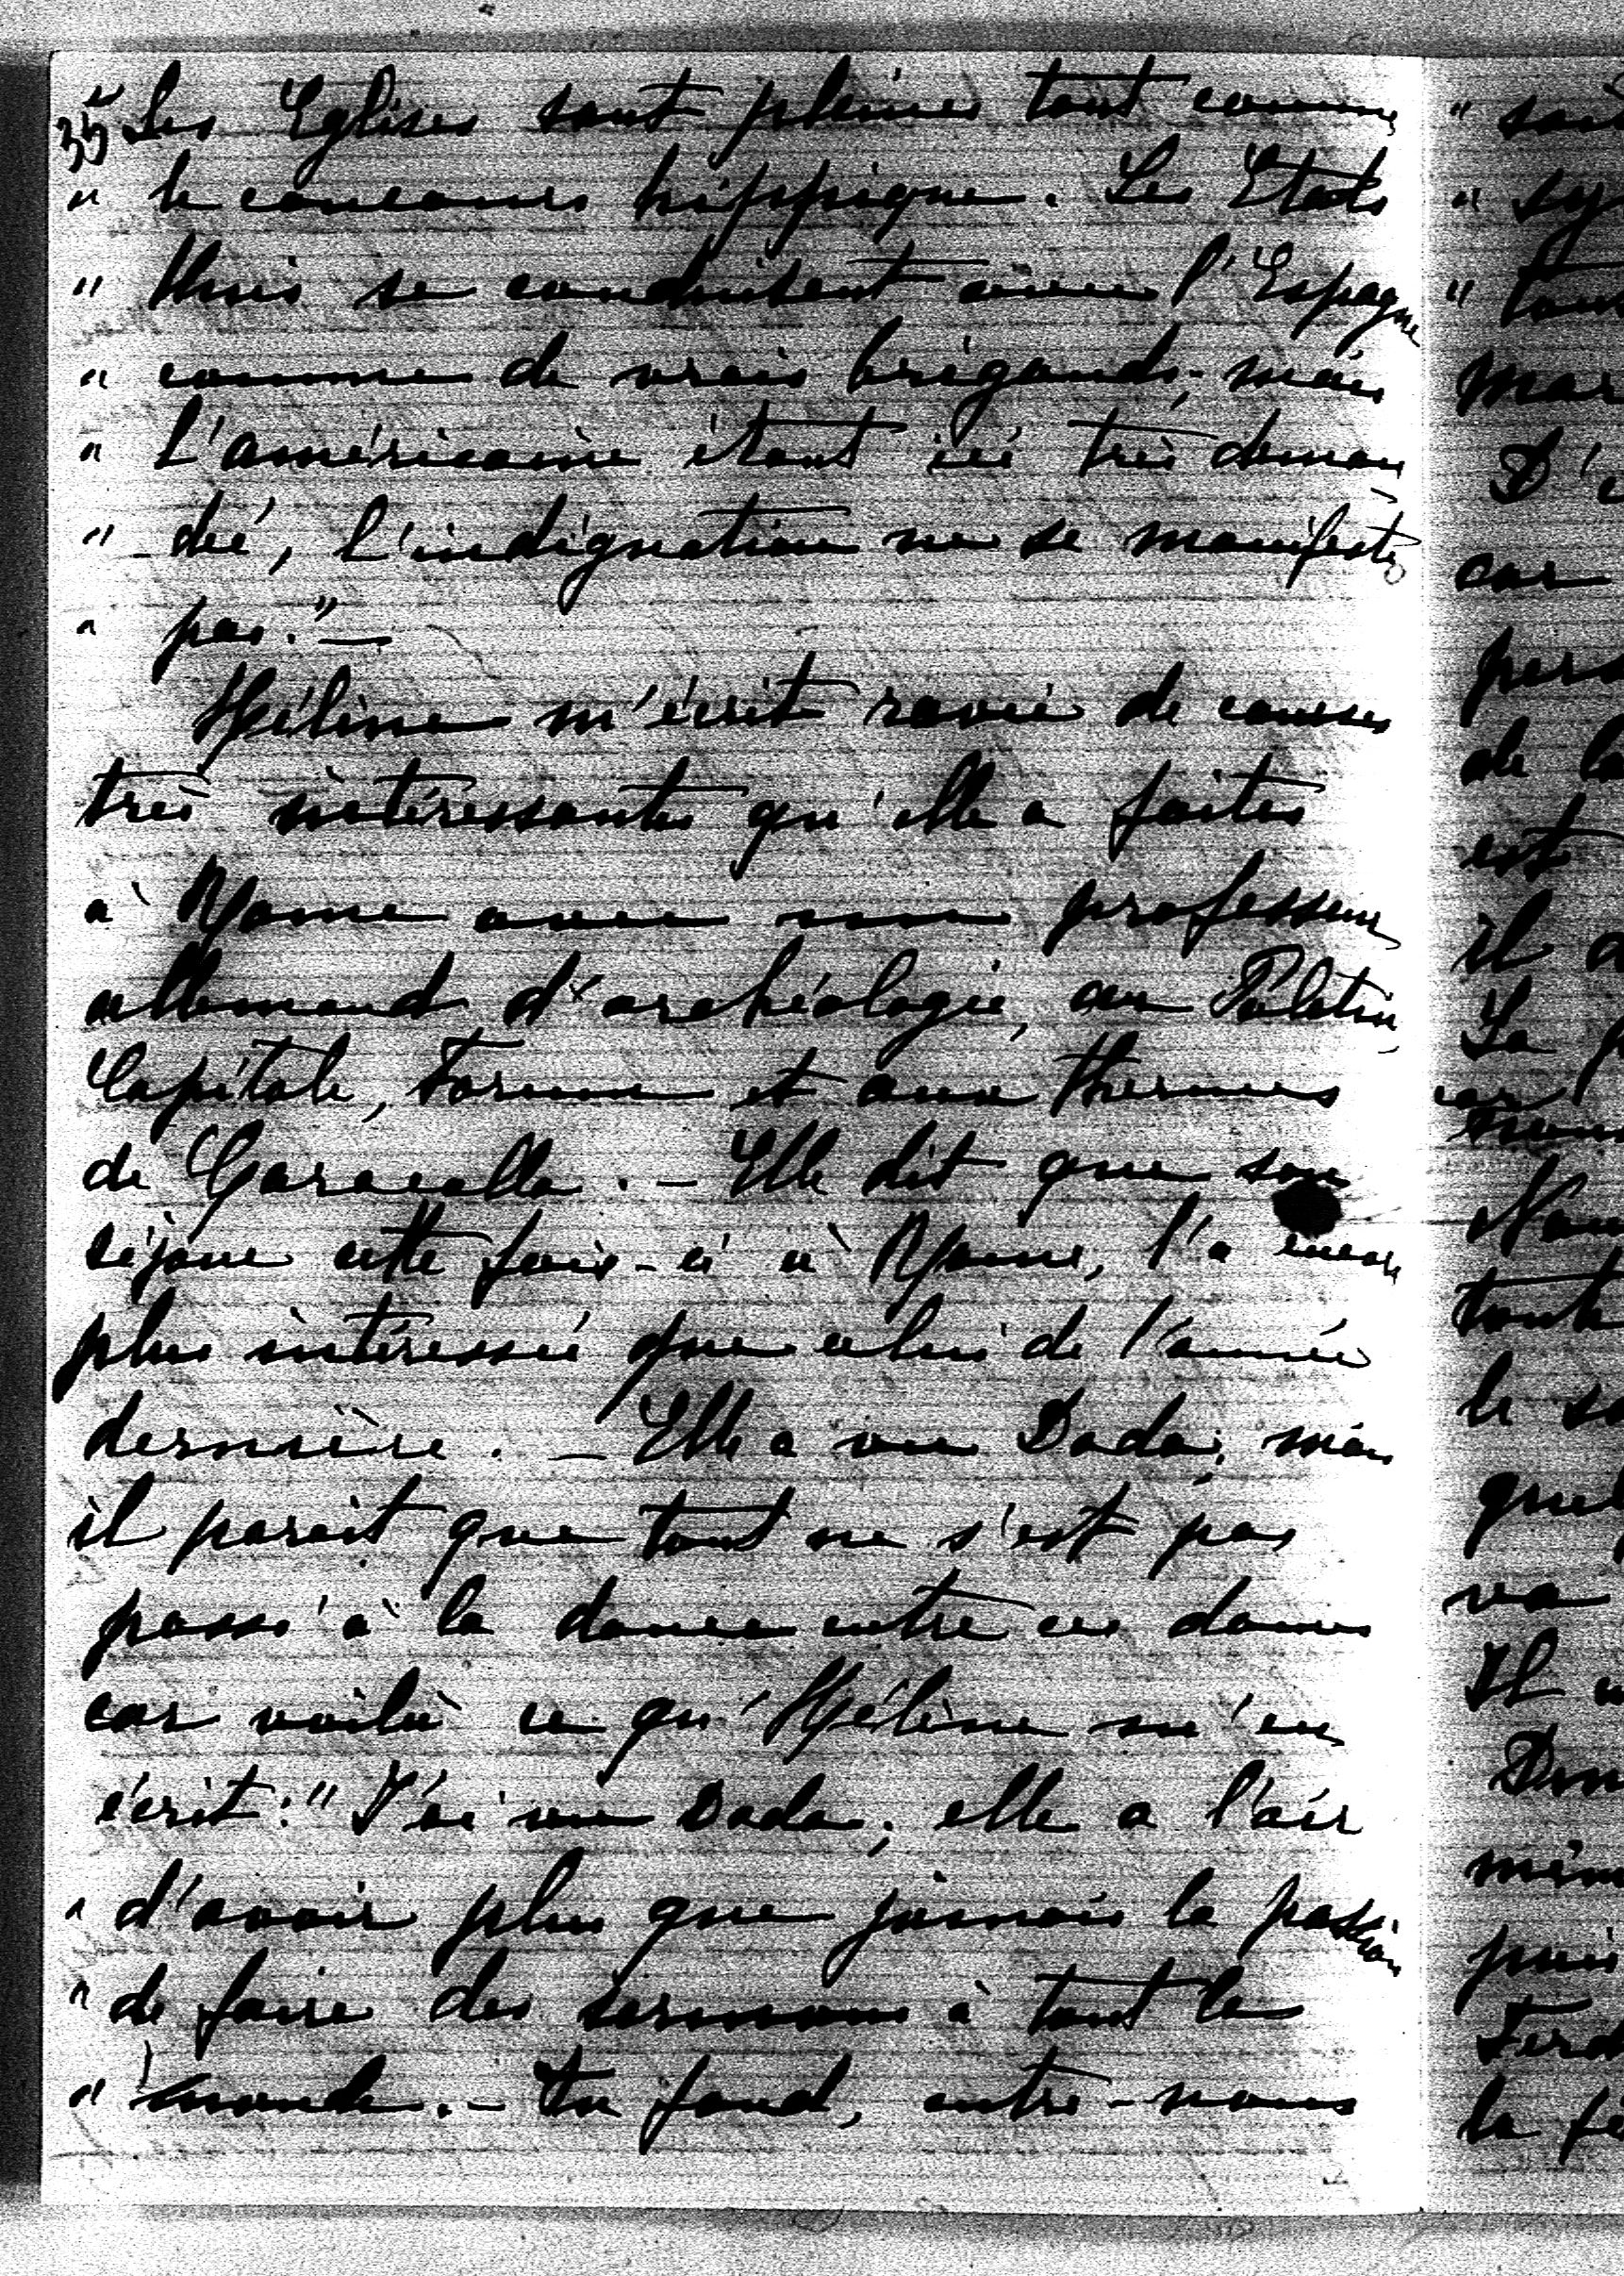 35 Les Eglises sont pleines tout comme
" le concours hippique. Les Etats
" Unis se conduisent avec l'Espagne
" comme de vrais brigands, mais
" L'américaine étant ici très deman
" -dée, l'indignation ne se manifeste
" pas." —
Hélène m'écrit ravie de courses
très intéressantes qu'elle a faites
à Rome avec un professeur
allemand d'archéologie, au Palatin,
Capitole, Forum et aux thermes
de Caracalla. – Elle dit que son
séjour cette fois-ci à Rome, l'a encore
plus intéressée que celui de l'année
dernière. – Elle a vu Dada, mais
il parait que tout ne s'est pas
passé à la douce entre ces dames
car voilà ce qu'Hélène m'en
écrit: "J'ai vu Dada, elle a l'air
" d'avoir plus que jamais la passion
" de faire des sermons à tout le
" monde. – Au fond, entre-nous
" soi
" sy
" tou
mar
D'a
car
pers
de la
est
il a
La
car
Nou
toute
le se
que
va
Il
Don
mêm
puis
Ferd
la fe